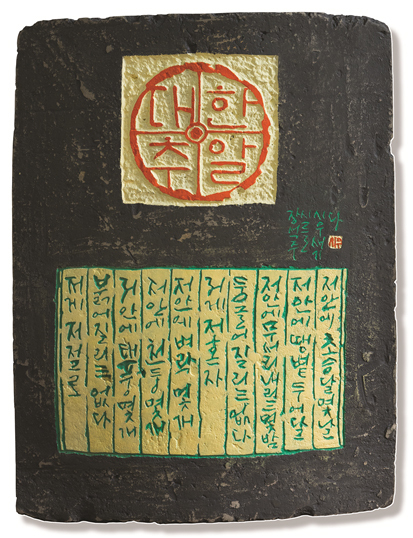 대추
한알
장석주
저게 저절로
붉어질 리는 없다
저 안에 태풍 몇 개
저 안에 천둥 몇 개
저 안에 벼락 몇 개
저게 저 혼자
둥글어질 리는 없다
저 안에 무서리 내리는 몇 밤
저 안에 땡볕 두어 달
저 안에 초승달 몇 날